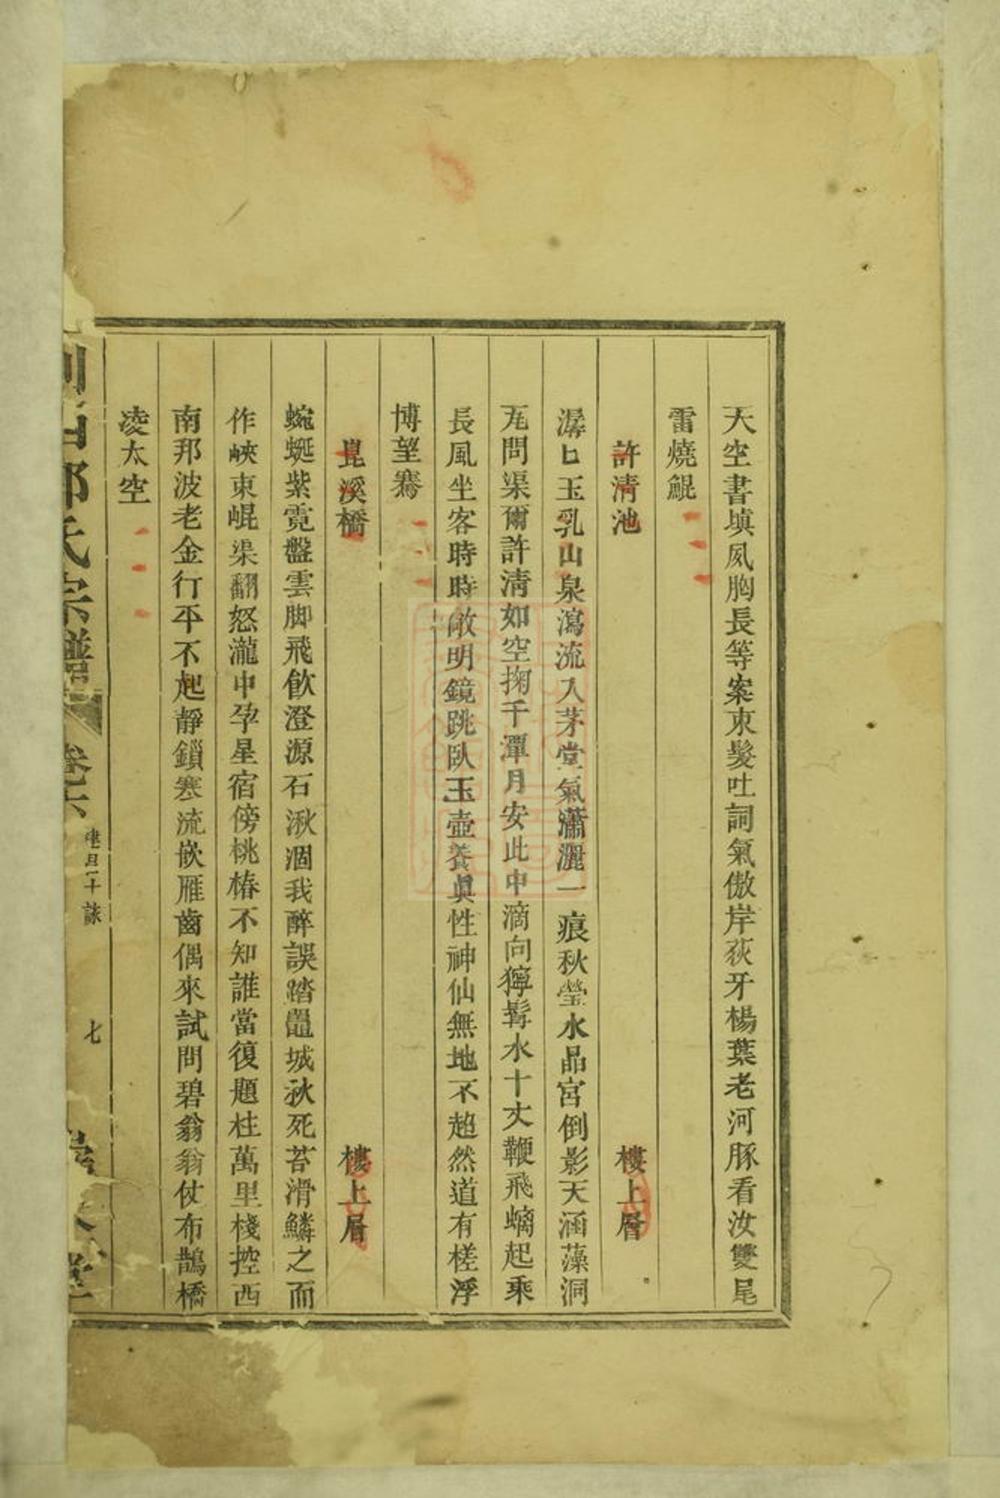 天空書填夙胸長等案東髮吐詞氣傲岸荻牙楊葉老河豚看汝雙尾
雷燒鯤
許清池 樓上層
潺匕玉乳山泉瀉流入茅堂氣瀟灑一痕秋瑩水晶宮倒影天涵藻洞
問渠爾許清如空掬千潭月安此中滴向獰髯水十丈鞭飛螭起乘
長風坐客時時敞明鏡跳臥玉壺養眞性神仙無地不超然道有槎浮
博望騫
崑溪橋 樓上層
蜿蜒紫霓盤雲脚飛飮澄源石湫涸我醉誤踏鼉城秋死苔滑鱗之而
作峽東崐渠翻怒瀧中孕星宿傍桃椿不知誰當復題柱萬里棧控西
南邦波老金行平不起靜鎖寒流嵌雁齒偶來試問碧翁翁仗布鵲橋
凌太空
氏宗譜 卷六 十詠 七